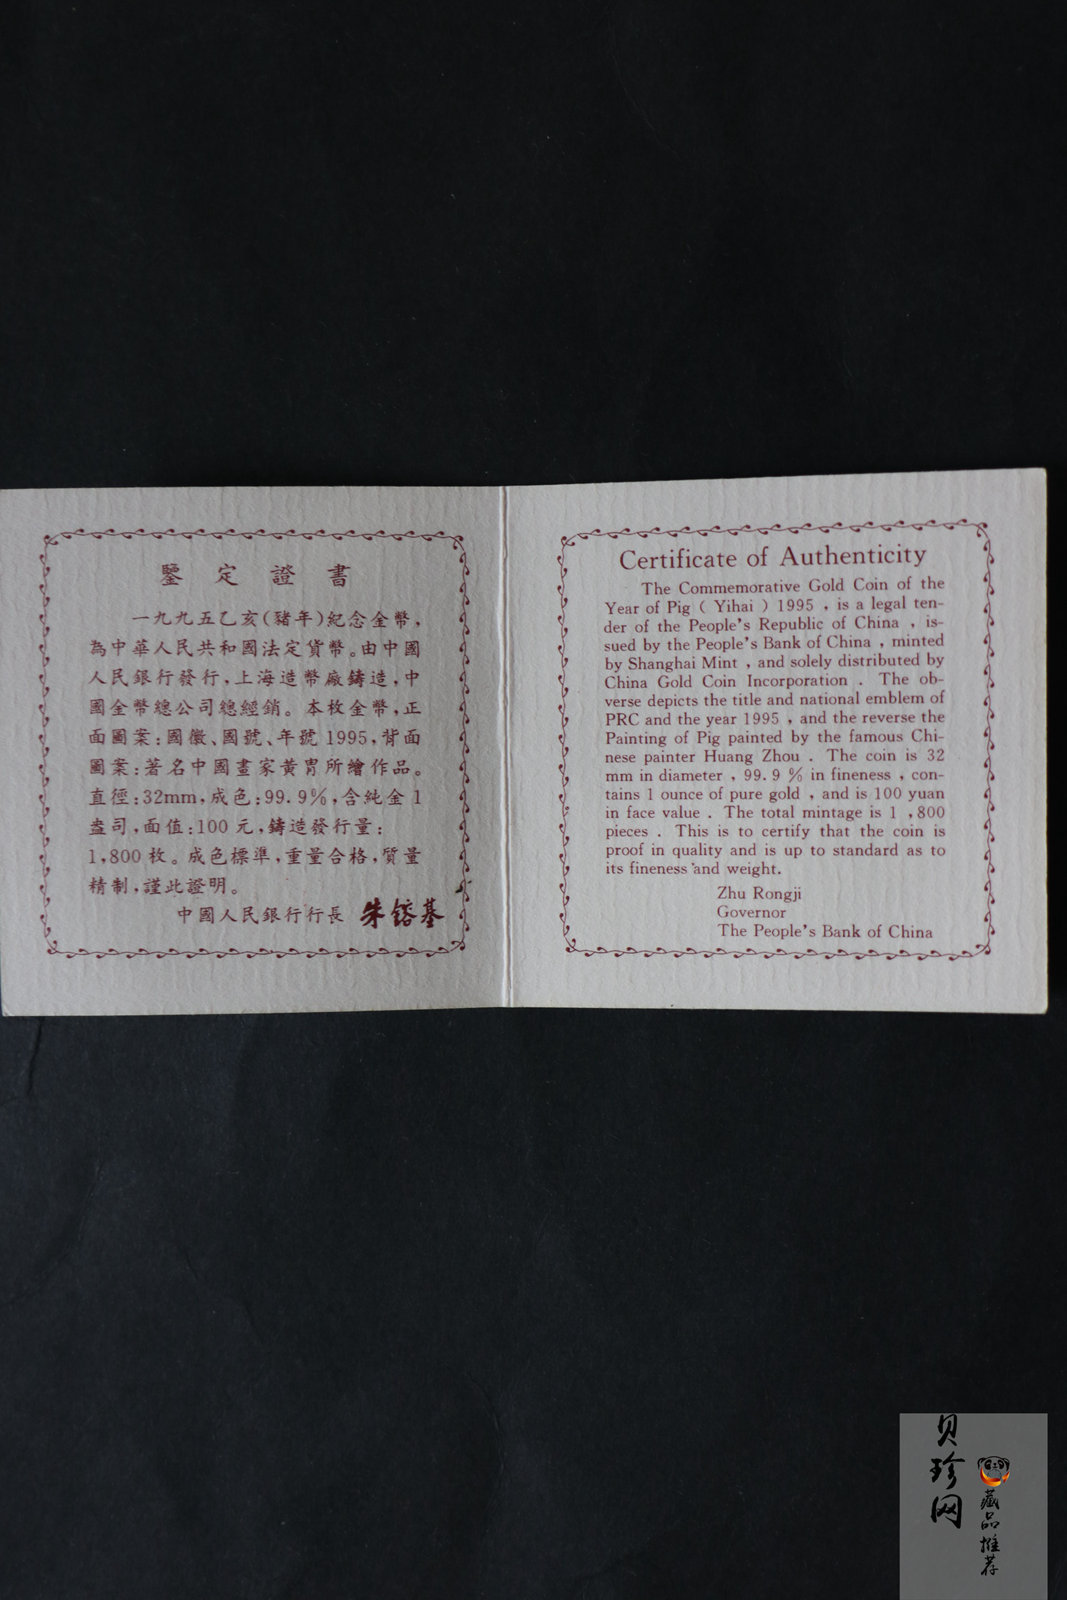 鑒定證書
一九九五乙亥(豬年)紀念金幣,
為中華人民共和國法定貨幣。由中國
人民銀行發行,上海造幣廠鑄造,中
國金幣總公司總經銷。本枚金幣,正
面圖案:國徽、國號、年號1995,背面
圖案:著名中國畫家黃胄所繪作品。
直徑:32mm,成色:99.9%,含純金1
盎司,面值:100元,鑄造發行量:
1,800枚。成色標準,重量合格,質量
精制,謹此證明。
中國人民銀行行長 朱鎔基
Certificate of Authenticity
The Commemorative Gold Coin of the
Year of Pig ( Yihai ) 1995 , is a legal ten-
der of the People's Republic of China , is-
sued by the People's Bank of China , minted
by Shanghai Mint , and solely distributed by
China Gold Coin Incorporation . The ob-
verse depicts the title and national emblem of
PRC and the year 1995 , and the reverse the
Painting of Pig painted by the famous Chi-
nese painter Huang Zhou . The coin is 32
mm in diameter , 99. 9 % in fineness , con-
tains 1 ounce of pure gold , and is 100 yuan
in face value . The total mintage is 1 ,800
pieces . This is to certify that the coin is
proof in quality and is up to standard as to
its fineness and weight.
Zhu Rongji
Governor
The People's Bank of China
贝珍网
藏品推荐